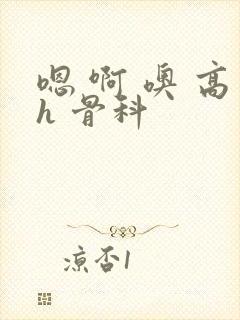 嗯啊噢高
h骨科
凉否1